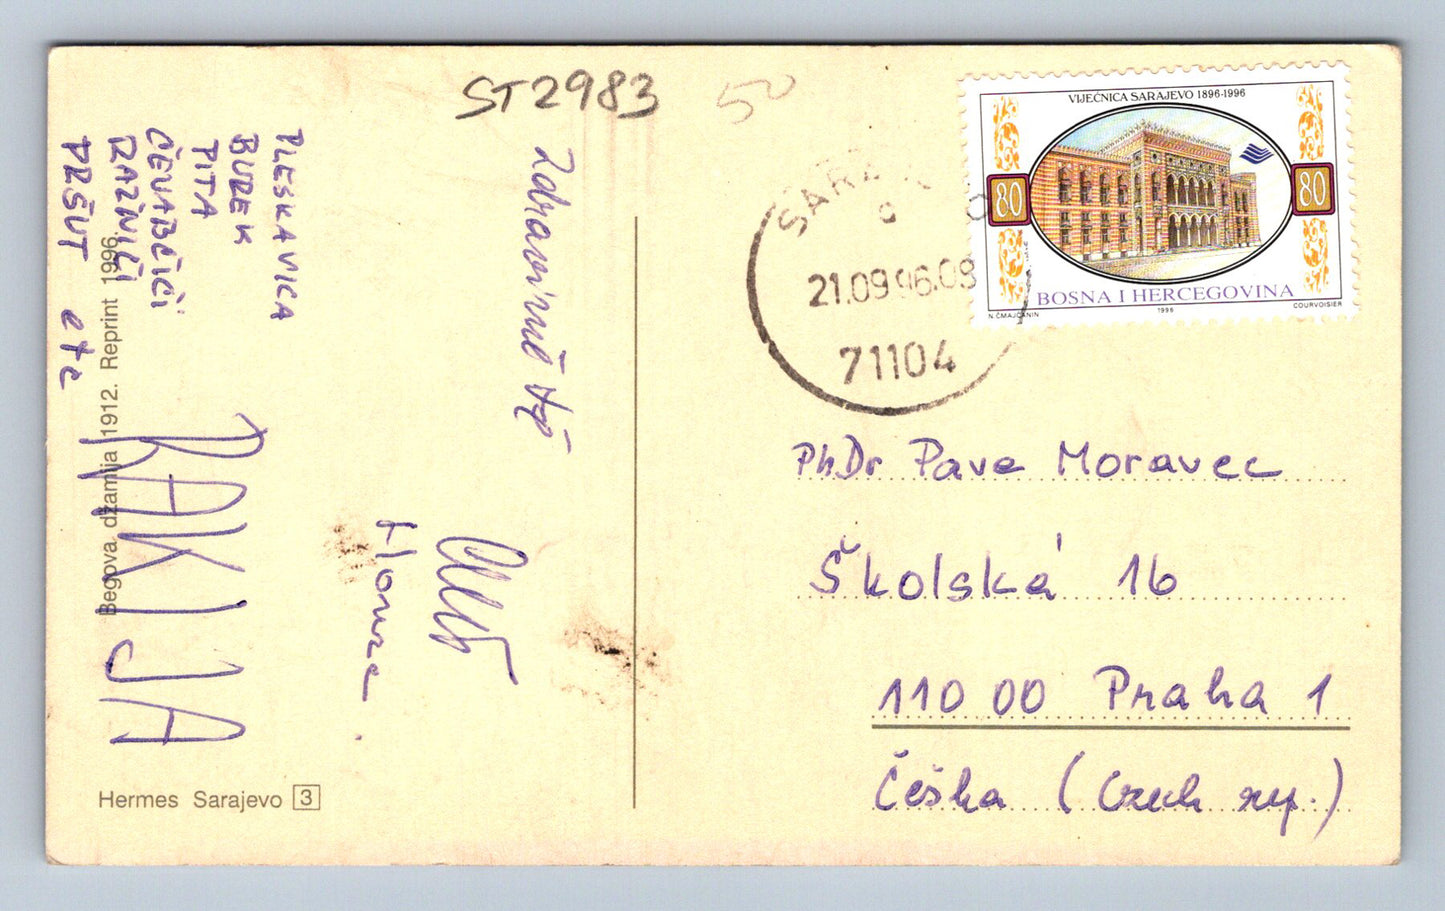 ST2983
50
PLESKAVICA
BUREK
PITA
ČEVABČIĆI
RAŽNIĆI
PRŠUT etc
RAKIJA
Honza.
Begova džamija 1912. Reprint 1996.
Hermes Sarajevo 3
SARAJ
21.09.96.09
71104
VIJEĆNICA SARAJEVO 1896-1996
80
80
BOSNA I HERCEGOVINA
N.ČMAJČANIN
1996
COURVOISIER
PhDr Pave Moravec
Školská 16
110 00 Praha 1
Češka (Czech rep.)